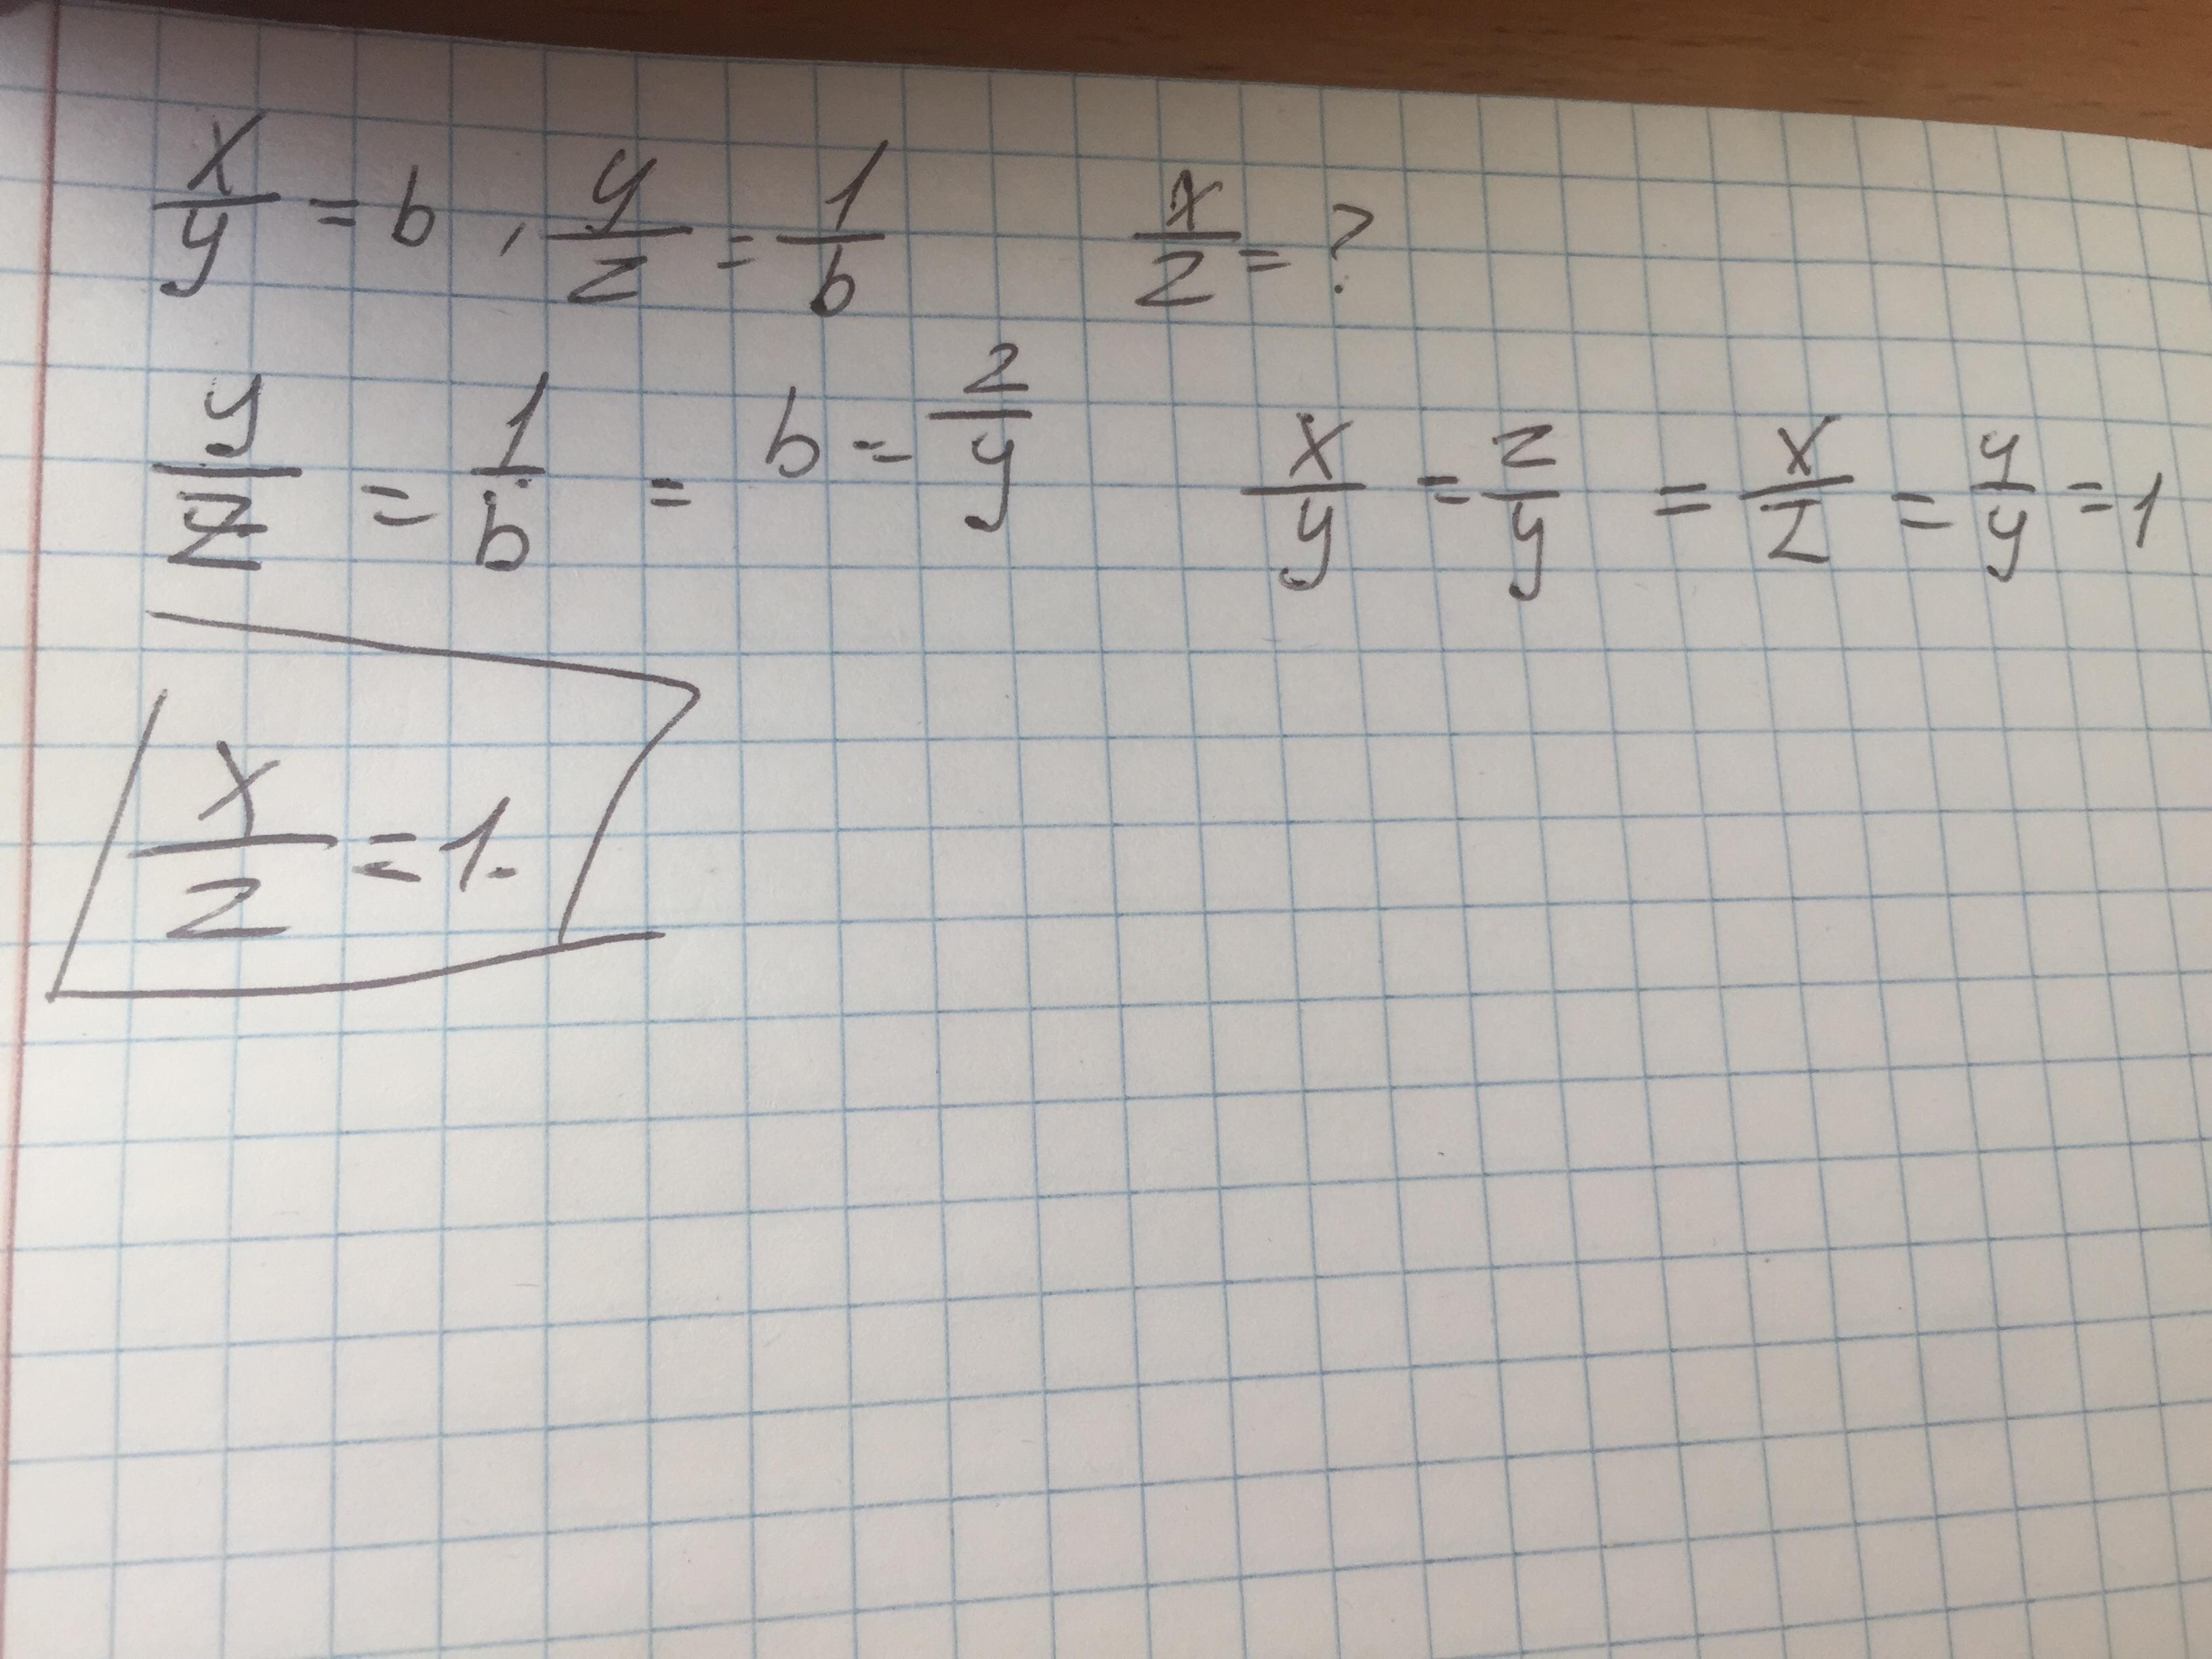 x/y = b, y/z = 1/b x/z = ?
y/z = 1/b = b = z/y x/y = z/y = x/z = y/y = 1
x/z = 1.